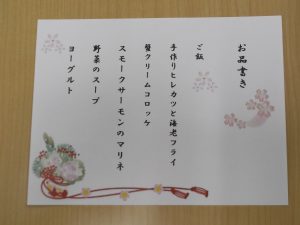 お品書き
ご飯
手作りヒレカツと海老フライ
蟹クリームコロッケ
スモークサーモンのマリネ
野菜のスープ
ヨーグルト